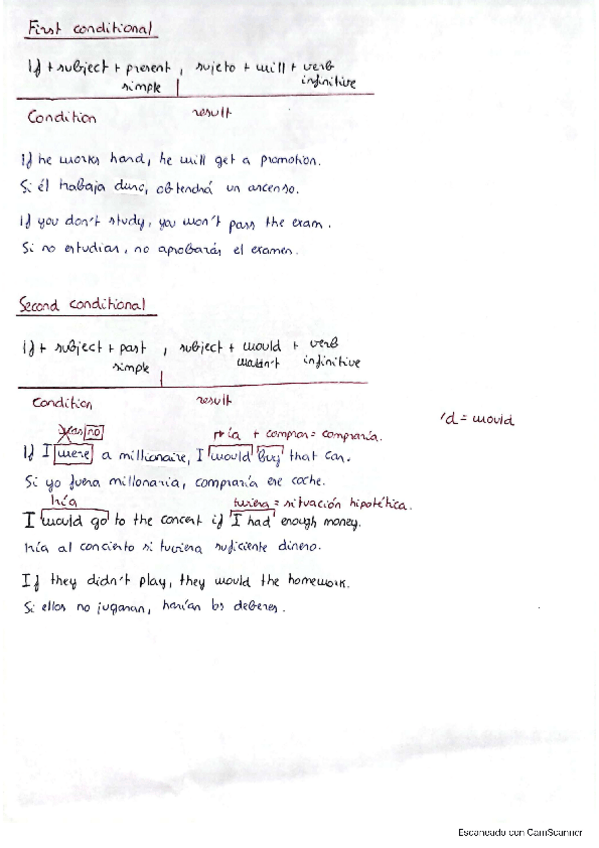 First conditional
If + subject + present , sujeto + will + verb
simple infinitive
Condition result
If he works hard, he will get a promotion.
Si él trabaja duro, obtendrá un ascenso.
If you don't study, you won't pass the exam.
Si no estudias, no aprobarás el examen.
Second conditional
If + subject + past , subject + would + verb
simple wouldn't infinitive
Condition result
'd = would
no + comprar = compraría.
If I were a millionaire, I would buy that car.
Si yo fuera millonaria, compraría ese coche.
Iría tuviera = situación hipotética.
I would go to the concert if I had enough money.
Iría al concierto si tuviera suficiente dinero.
If they didn't play, they would the homework.
Si ellos no jugaran, harían los deberes.
Escaneado con CamScanner